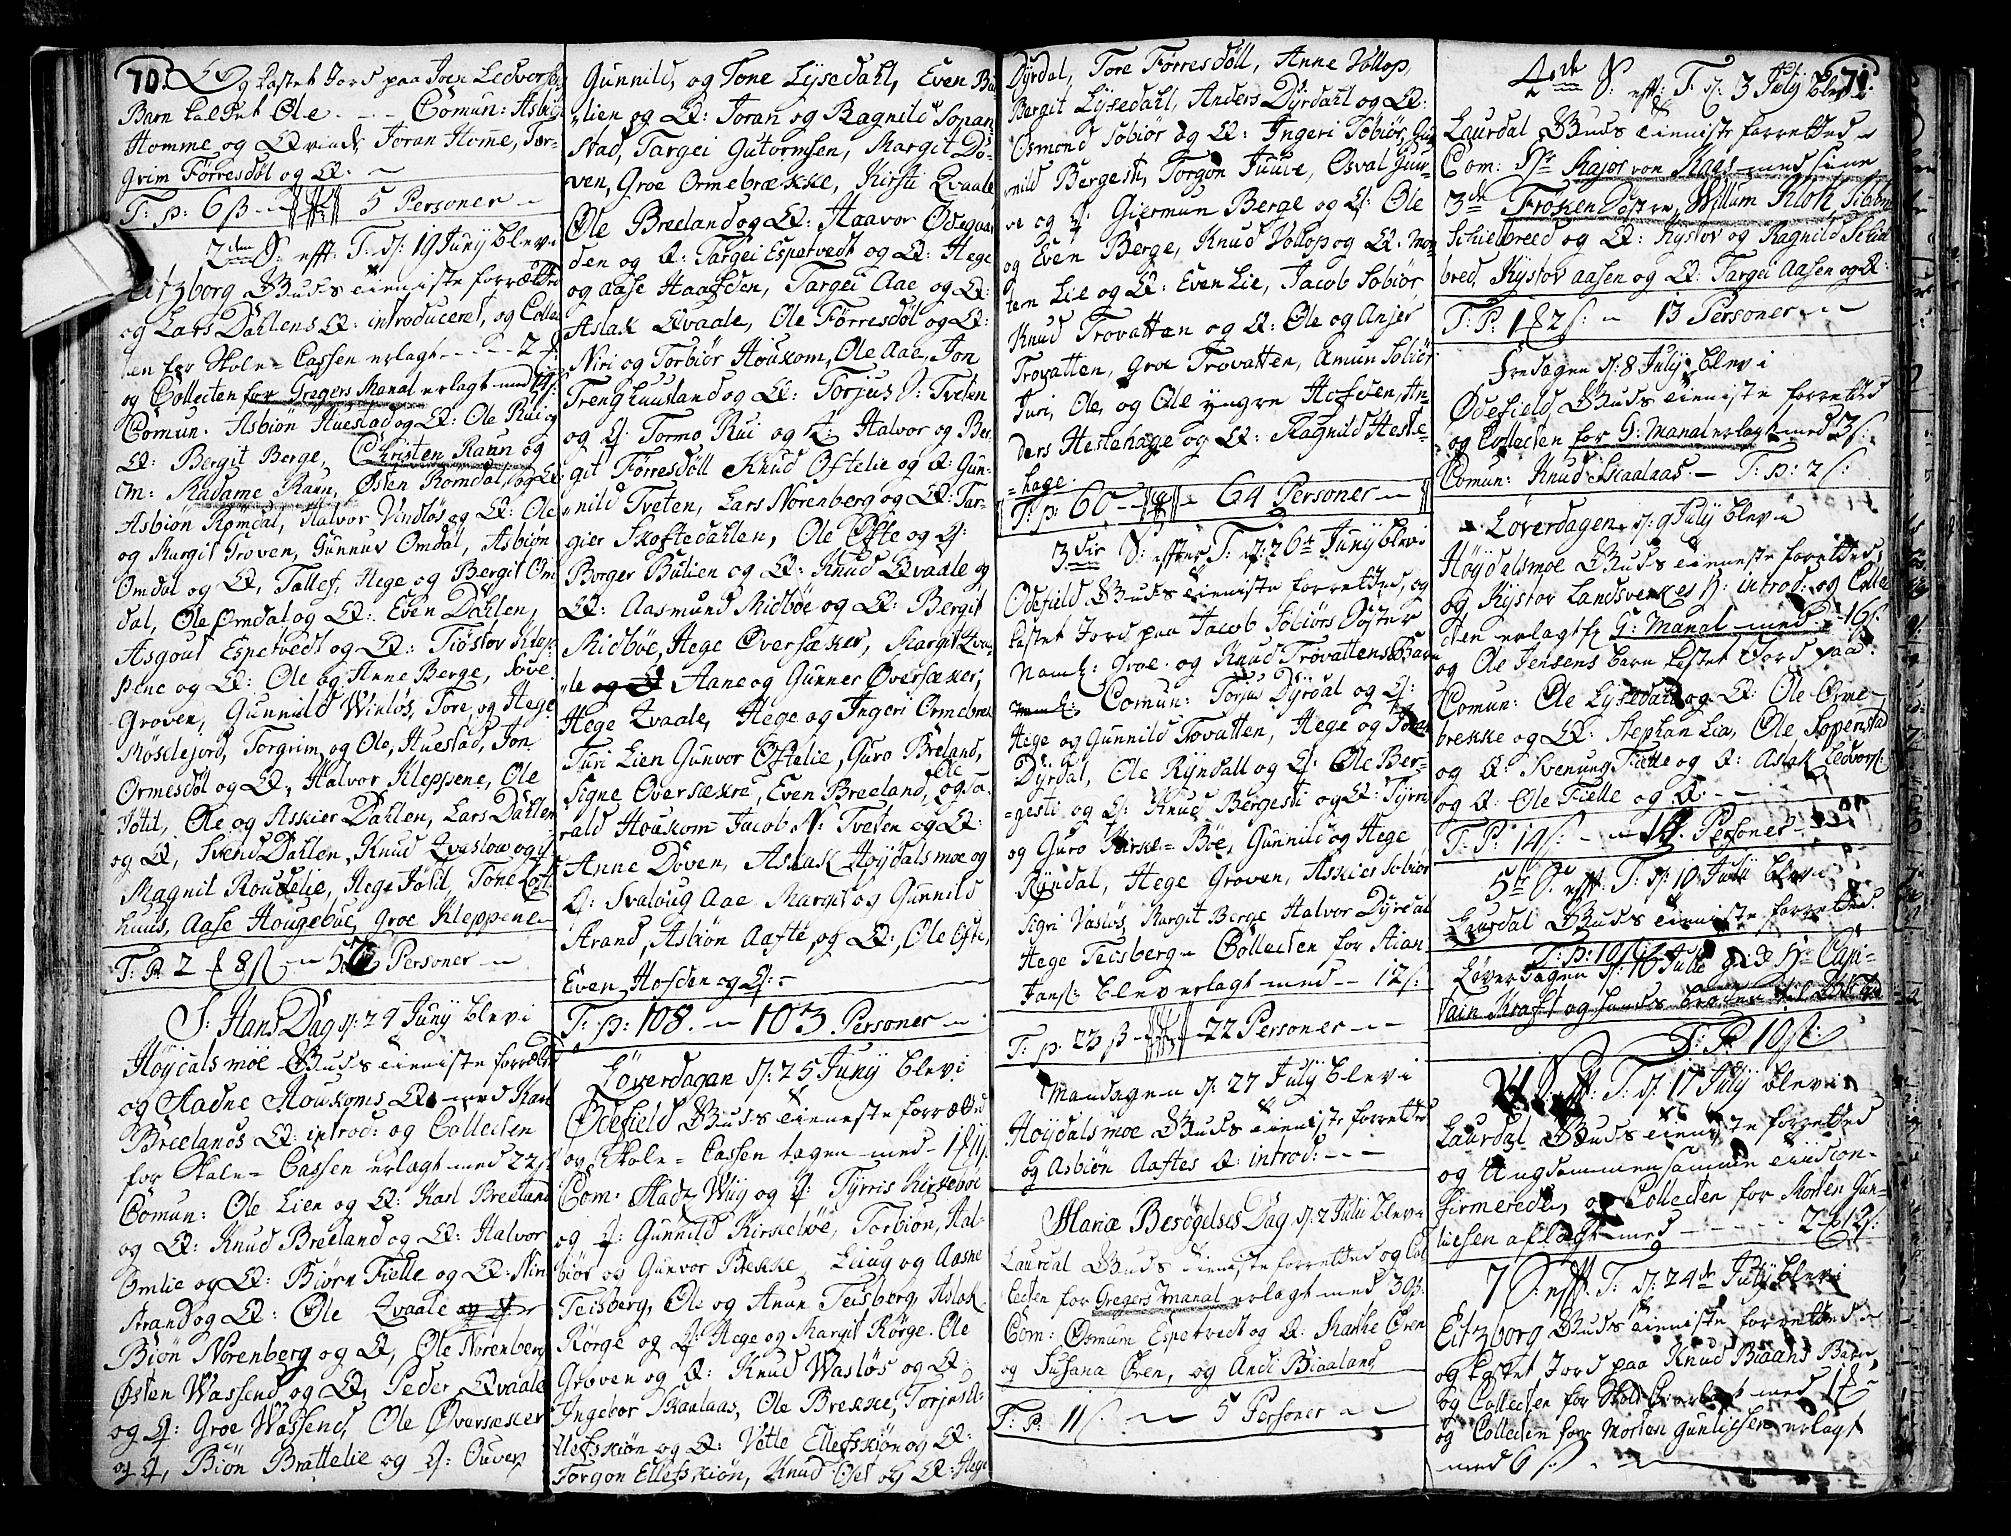 70.
og kastet Jord paa Joen Ledvorsens
Barn kaldet Ole - - - Comun: Asbiør
Homme og Qvinde, Joran Home, Tor-
grim Førresdøl og Q:
T: p: 6 ß - 5 Personer
2den S: eft: T: d: 19 Juny blev i
Eitzborg Guds tieniste forrettet
og Lars Dahlens Q: introduceret, og Collec-
ten for Skole-Cassen erlagt - - - 2 ß
og Collecten for Gregers Manal erlagt med
Comun: Asbiøn Huestad og Q: Ole Rui og
Q: Bergit Berge, Christen Ravn og
M: Madame Ravn, Østen Romdal, og Q:
Asbion Romdal, Halvor Vindløs og Q: Ole
og Margit Groven, Gunnuv Omdal, Asbiøn
Omdal og Q, Tallef, Hege og Bergit Om
dal, Ole Omdal og Q: Even Dahlen,
Asgout Espetvedt og Q: Tiøstov Klep-
pene og Q: Ole og Anne Berge, Tove
Groven, Gunnild Winløs, Tore, og Hege
Møsklejord, Torgrim, og Ole, Huestad, Jon
Ormesdøl og Q, Halvor Kleppene, Ole
Jøtil, Ole og Askier Dahlen, Lars Dahlen
og Q, Svend Dahlen, Knud Qvaslow og
Magnil Roudelie, Hege Jøtil, Tone Kost
huus, Aase Hougebue, Groe Kleppene
T: P. 2 f 8 ß - 57 Personer
S: Hans Dag d: 24 Juny blev i
Høydalsmoe Guds tieniste forrettet
og Aadne Houkoms Q: med Karl
Breelands Q: introd: og Collecten
for Skole-Cassen erlagt med 22 ß
Comun: Ole Lien og Q: Karl Breeland
og Q: Knud Breeland og Q: Halvor
Omlie og Q: Biørn Fielle og Q: Niri
Strand og Q: Ole Qvaale
Biøn Norenberg og Q, Ole Norenberg
Østen Wassend og Q, Peder Qvaale
og Q: Groe Wassend, Ole Øversæker
og Q, Biøn Brattelie og Q: Ouver
Gunnild, og Tone Lysedahl, Even Bu
lien og Q: Joran og Ragnild Sopan-
stad, Targei Gutormsen, Margit Do-
ven, Groe Ormebrække, Kirsti Qvaale
Ole Breeland og Q: Haavor Ødegaar
den og Q: Targei Espetvedt og Q: Hege
og Aase Haafsden, Targei Aae og Q:
Aslak Qvaale, Ole Førresdøl og Q:
Niri og Torbiør Houkom, Ole Aae, Jon
Trenghuusland og Q: Torjus J: Tveten
og Q: Tormo Rui og Q: Halvor og Ber
git Førresdøll Knud Oftelie og Q: Gun-
nild Tveten, Lars Norenberg og Q: Tar-
gier Skoftedahlen, Ole Øfte og Q:
Borger Bulien og Q: Knud Qvaale og
Q: Aasmund Midbøe og Q: Bergit
Midbøe, Hege Oversæker, Margit Qva-
le Aane og Gunner Øversæker,
Hege Qvaale, Hege og Ingeri Ormebrek
Turi Lien Gunvor Oftelie, Guro Breland,
Signe Oversækre, Even Breeland, og Ta-
rald Houkom Jacob N: Tveten og Q:
Anne Doven, Aslak Høydalsmoe og
Q: Svaloug Aae Margit og Gunnild
Strand, Asbiøn Aafte, og Q:, Ole Ofte,
Even Hofden og Q:
T: p: 108. - 103 Personer
Løverdagen d: 25 Juny blev i
Ødefield Guds tieneste forrettet
og Skole-Cassen tagen med -
Com: Madz Wiiy og Q: Tyrris Kirkebøe
og Q: Gunnild Kirkebøe, Torbiøn, Hal-
biør og Gunvor Bekke, Liug og Aasne
Teisberg, Ole og Anun Teisberg, Aslak
Rørge og Q: Hege og Margit Rørge. Ole
Groven og Q: Knud Wasløs og Q:
Ingebor Skaalaas, Ole Brekke, Torjus
Ellefskiøn og Q: Vetle Ellefskiøn og Q:
Torgon Ellefskiøn, Knud Ofte og Q: Hege
Dyrdal, Tore Førresdøll, Anne Vollop,
Bergit Lysedahl, Anders Dyrdahl og Q:
Osmond Søbiør og Q: Ingeri Søbiør, Gun
nild Bergesti, Torgon Juuve, Osval Juu-
ve og Q: Giermun Berge og Q: Ole
og Even Berge, Knud Vollop og Q: Mor
ten Lie og Q: Even Lie, Jacob Søbiør
Knud Trovatten og Q: Ole og Anjer
Trovatten, Groe Trovatten, Amun Søbiør
Turi, Ole, og Ole yngre Hofden, An-
ders Hestehage og Q: Ragnild Heste-
hage.
T: p: 60 - 64 Personer
3die S: efter T: d: 26de Juny blev i
Ødefield Guds tieniste forrettet, og
kastet Jord paa Jacob Søbiørs Dotter
Naml: Groe og Knud Trovattens Barn
Comun: Torjus Dyrdal og Q:
Hege og Gunnild Trovatten, Hege og
Dyrdal, Ole Ryndall og Q: Ole Ber-
gesti og Q: Knud Bergesti og Q: Tyrri
og Guro Kirke-Bøe, Gunnild og Hege
Ryndal, Hege Groven, Askier Søbiør
Sigri Vasløs, Margit Berge Halvor Dyrdal
Hege Teisberg - Collecten for Stian
Jans: blev erlagt med -- 12 ß:
T: p. 23 ß - 22 Personer
Mandagen d: 27 July blev i
Høydalsmoe Guds tieniste forrettet
og Asbiøn Aaftes Q: introd: - -
Mariæ Besøgelses Dag d: 2 Julii blev i
Laurdal Guds tieniste forrettet og Col
lecten for Gregers Manal erlagt med
Com: Osmum Espetvedt og Q: Makke Øren
og Susana Øren, og Andi Biaaland
T: P. 11 ß - 5 Personer
71.
4de S: eft: T: d: 3 July blev i
Laurdal Guds tieniste forrettet
Com: Hr Major von Kaas med sine
3de Frøkendøtre, Willum Klok
Schielbreed og Q: Kystov og Ragnild Schiel
bred, Kystov Aasen og Q: Targei Aasen og Q:
T: P. 1 f 2 ß: - 13 Personer
Fredagen d: 8 July blev i
Ødefield Guds tieniste forrettet
og Collecten for G: Manal erlagt med 3 ß:
Comun: Knud Skaalaas. - T: p: 2 ß:
Løverdagen d: 9 July blev i
Høydalsmoe Guds tieneste forrettet,
og Kystov Landsverkes Q: introd: og Collec
ten erlagt for G: Manal med - 16 ß:
og Ole Jensens barn kastet Jord paa:
Comun: Ole Lysedahl og Q: Ole Orme-
brekke og Q: Stephan Lia, Ole Sopenstad
og Q: Svenung Fielle og Q: Aslak Ledvors:
og Q: Ole Fielle og Q:
T: P: 14 ß: - Personer
5te S: eft: T: d: 10 July blev i
Laurdal Guds tieniste forrettet
T: p: 10 ß
Løverdagen d: 16 Julii
tain Kraft og hands
T: P. 10 ß:
S: eft: T: d: 17 July blev i
Laurdal Guds tieniste forrettet
og Ungdommen samme tiid con-
firmerede, og Collecten for Morten Gun-
liesen aflagt med - - - - 2 f 12 ß:
7 S: eft: T: d: 24de July blev i
Eitzborg Guds tieniste forrettet
og kastet Jord paa Knud Biaans Barn,
og Collecten for Skole C: erlagt med
og Collecten for Morten Gunliesen erlagt
med 6 ß: